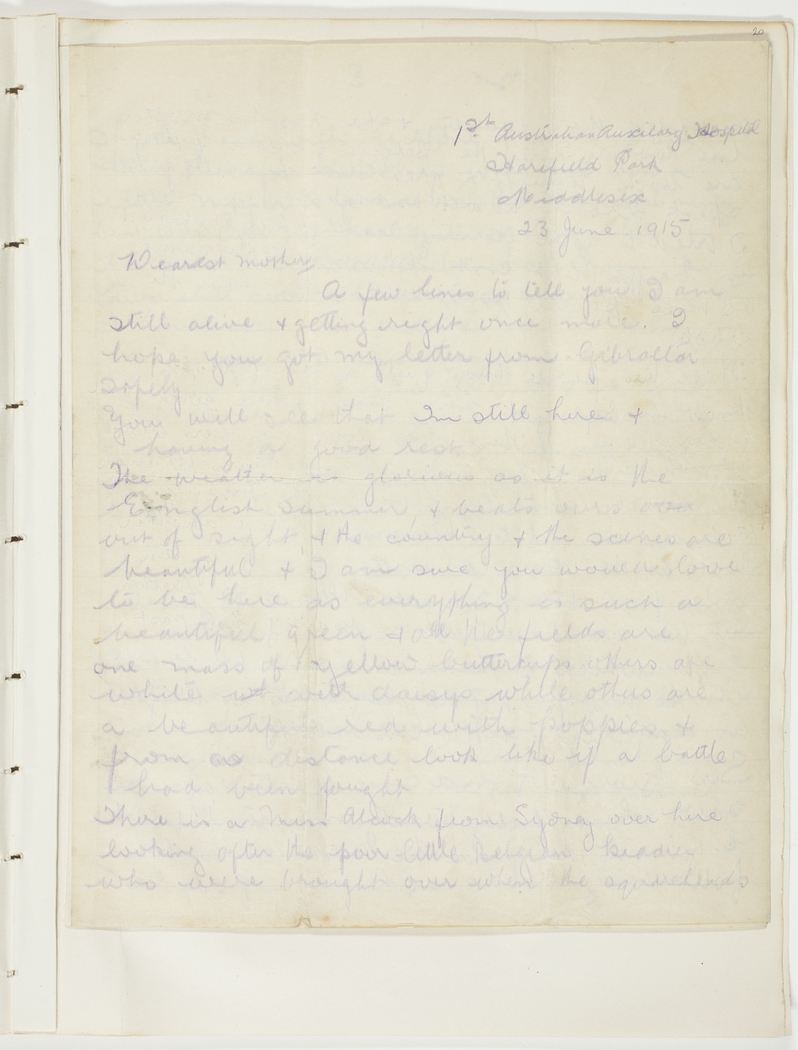 20
1st Australian Auxilary Hospital
Harefield Park
Middlesex
23 June 1915
Dearest Mother,
A few lines to tell you I am
still alive & getting right once more. I
hope you got my letter from Gibraltar
safely
You will see that Im still here &
having a good rest
The weather is glorious as it is the
English summer, & beats ours
out of sight, & the country & the scenes are
beautiful & I am sure you would love
to be here as everything is such a
beautiful green & all the fields are
one mass of yellow buttercups others are
white with daisys while others are
a beautiful red with poppies &
from a distance look like if a battle
had been fought
There is a Miss Alcock from Sydney over here
looking after the poor little Belgian kiddies
who were brought over when the